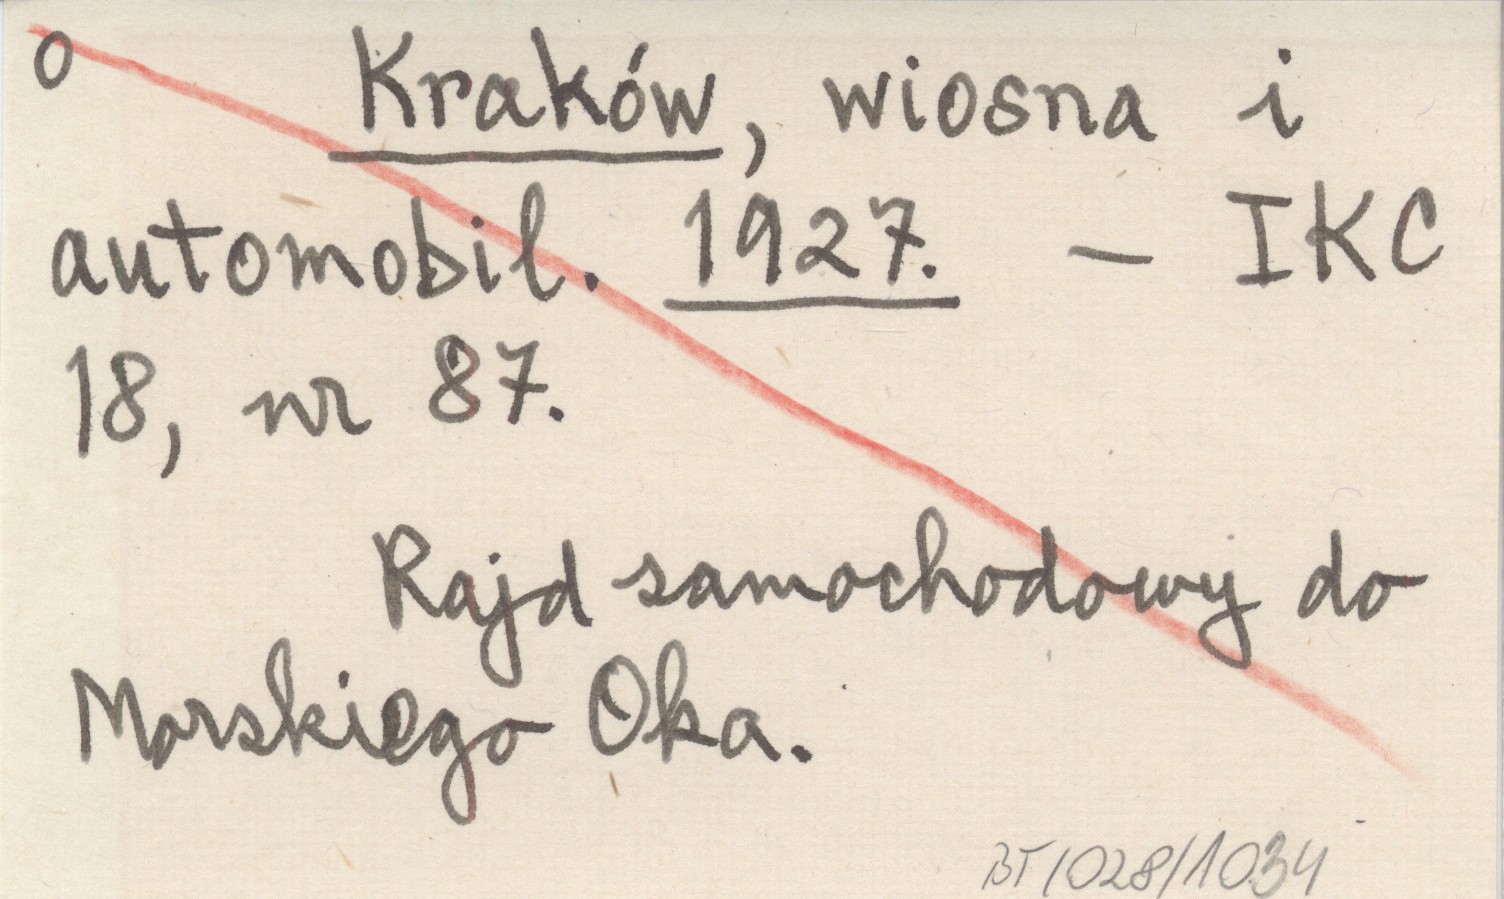 o Kraków, wiosna i
automobil. 1927. — IKC
18, nr 87.
Rajd samochodowy do
Morskiego Oka.
BT/028/1034